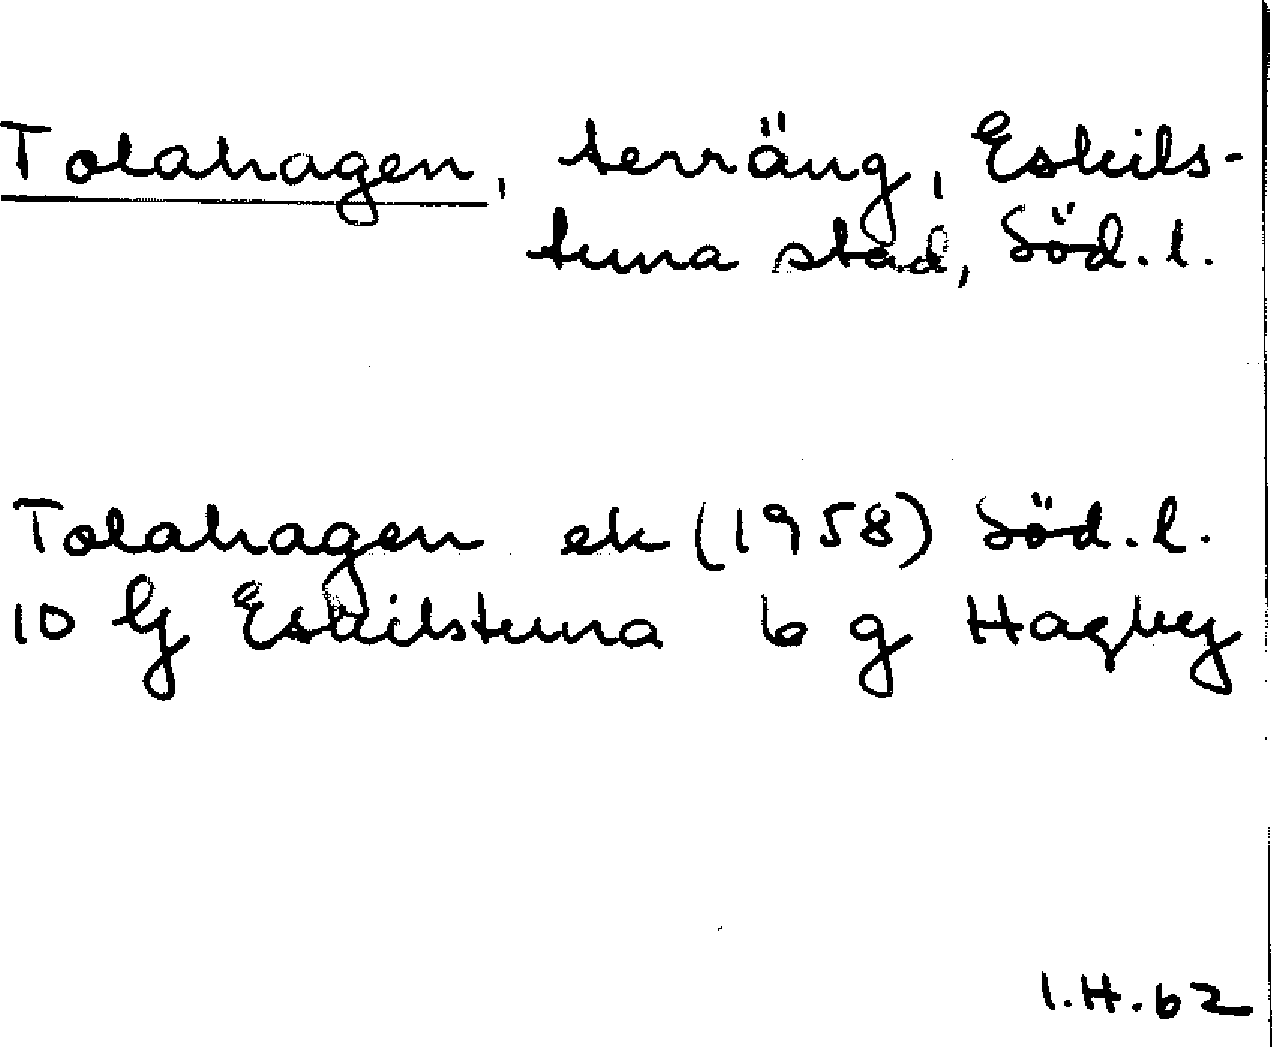 Tolahagen, terräng, Eskils-
tuna stad, Söd. l.
Tolahagen ek (1958) Söd. l.
10 G Eskilstuna 6 g Hagby
I.H.62